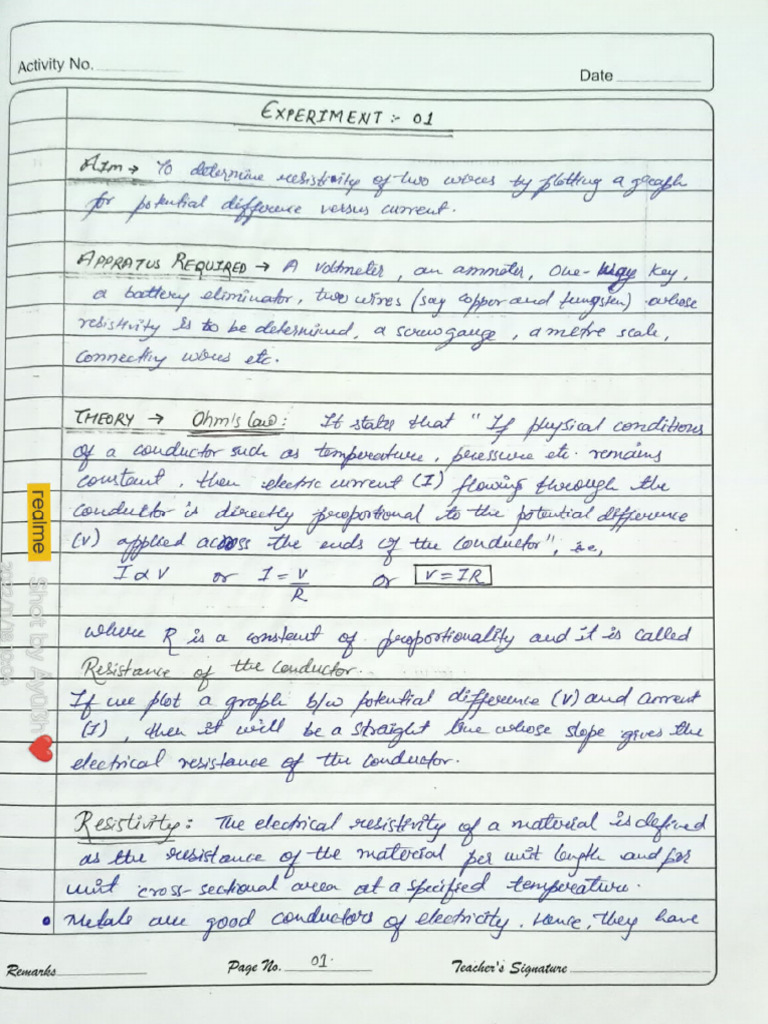 Activity No.
Date
EXPERIMENT :- 01
AIM → To determine resistivity of two wires by plotting a graph
for potential difference versus current.
APPRATUS REQUIRED → A voltmeter, an ammeter, One-way key,
a battery eliminator, two wires (say copper and tungsten) whose
resistivity is to be determined, a screw gauge, a metre scale,
connecting wires etc.
THEORY → Ohm's law: It states that "If physical conditions
of a conductor such as temperature, pressure etc. remains
constant, then electric current (I) flowing through the
conductor is directly proportional to the potential difference
(V) applied across the ends of the conductor", i.e,
I ∝ V or I = V/R or V = IR
where R is a constant of proportionality and it is called
Resistance of the conductor.
If we plot a graph b/w potential difference (V) and current
(I), then it will be a straight line whose slope gives the
electrical resistance of the conductor.
Resistivity: The electrical resistivity of a material is defined
as the resistance of the material per unit length and for
unit cross-sectional area at a specified temperature.
• Metals are good conductors of electricity. Hence, they have
Remarks
Page No. 01.
Teacher's Signature
realme
Shot by Ay0sh